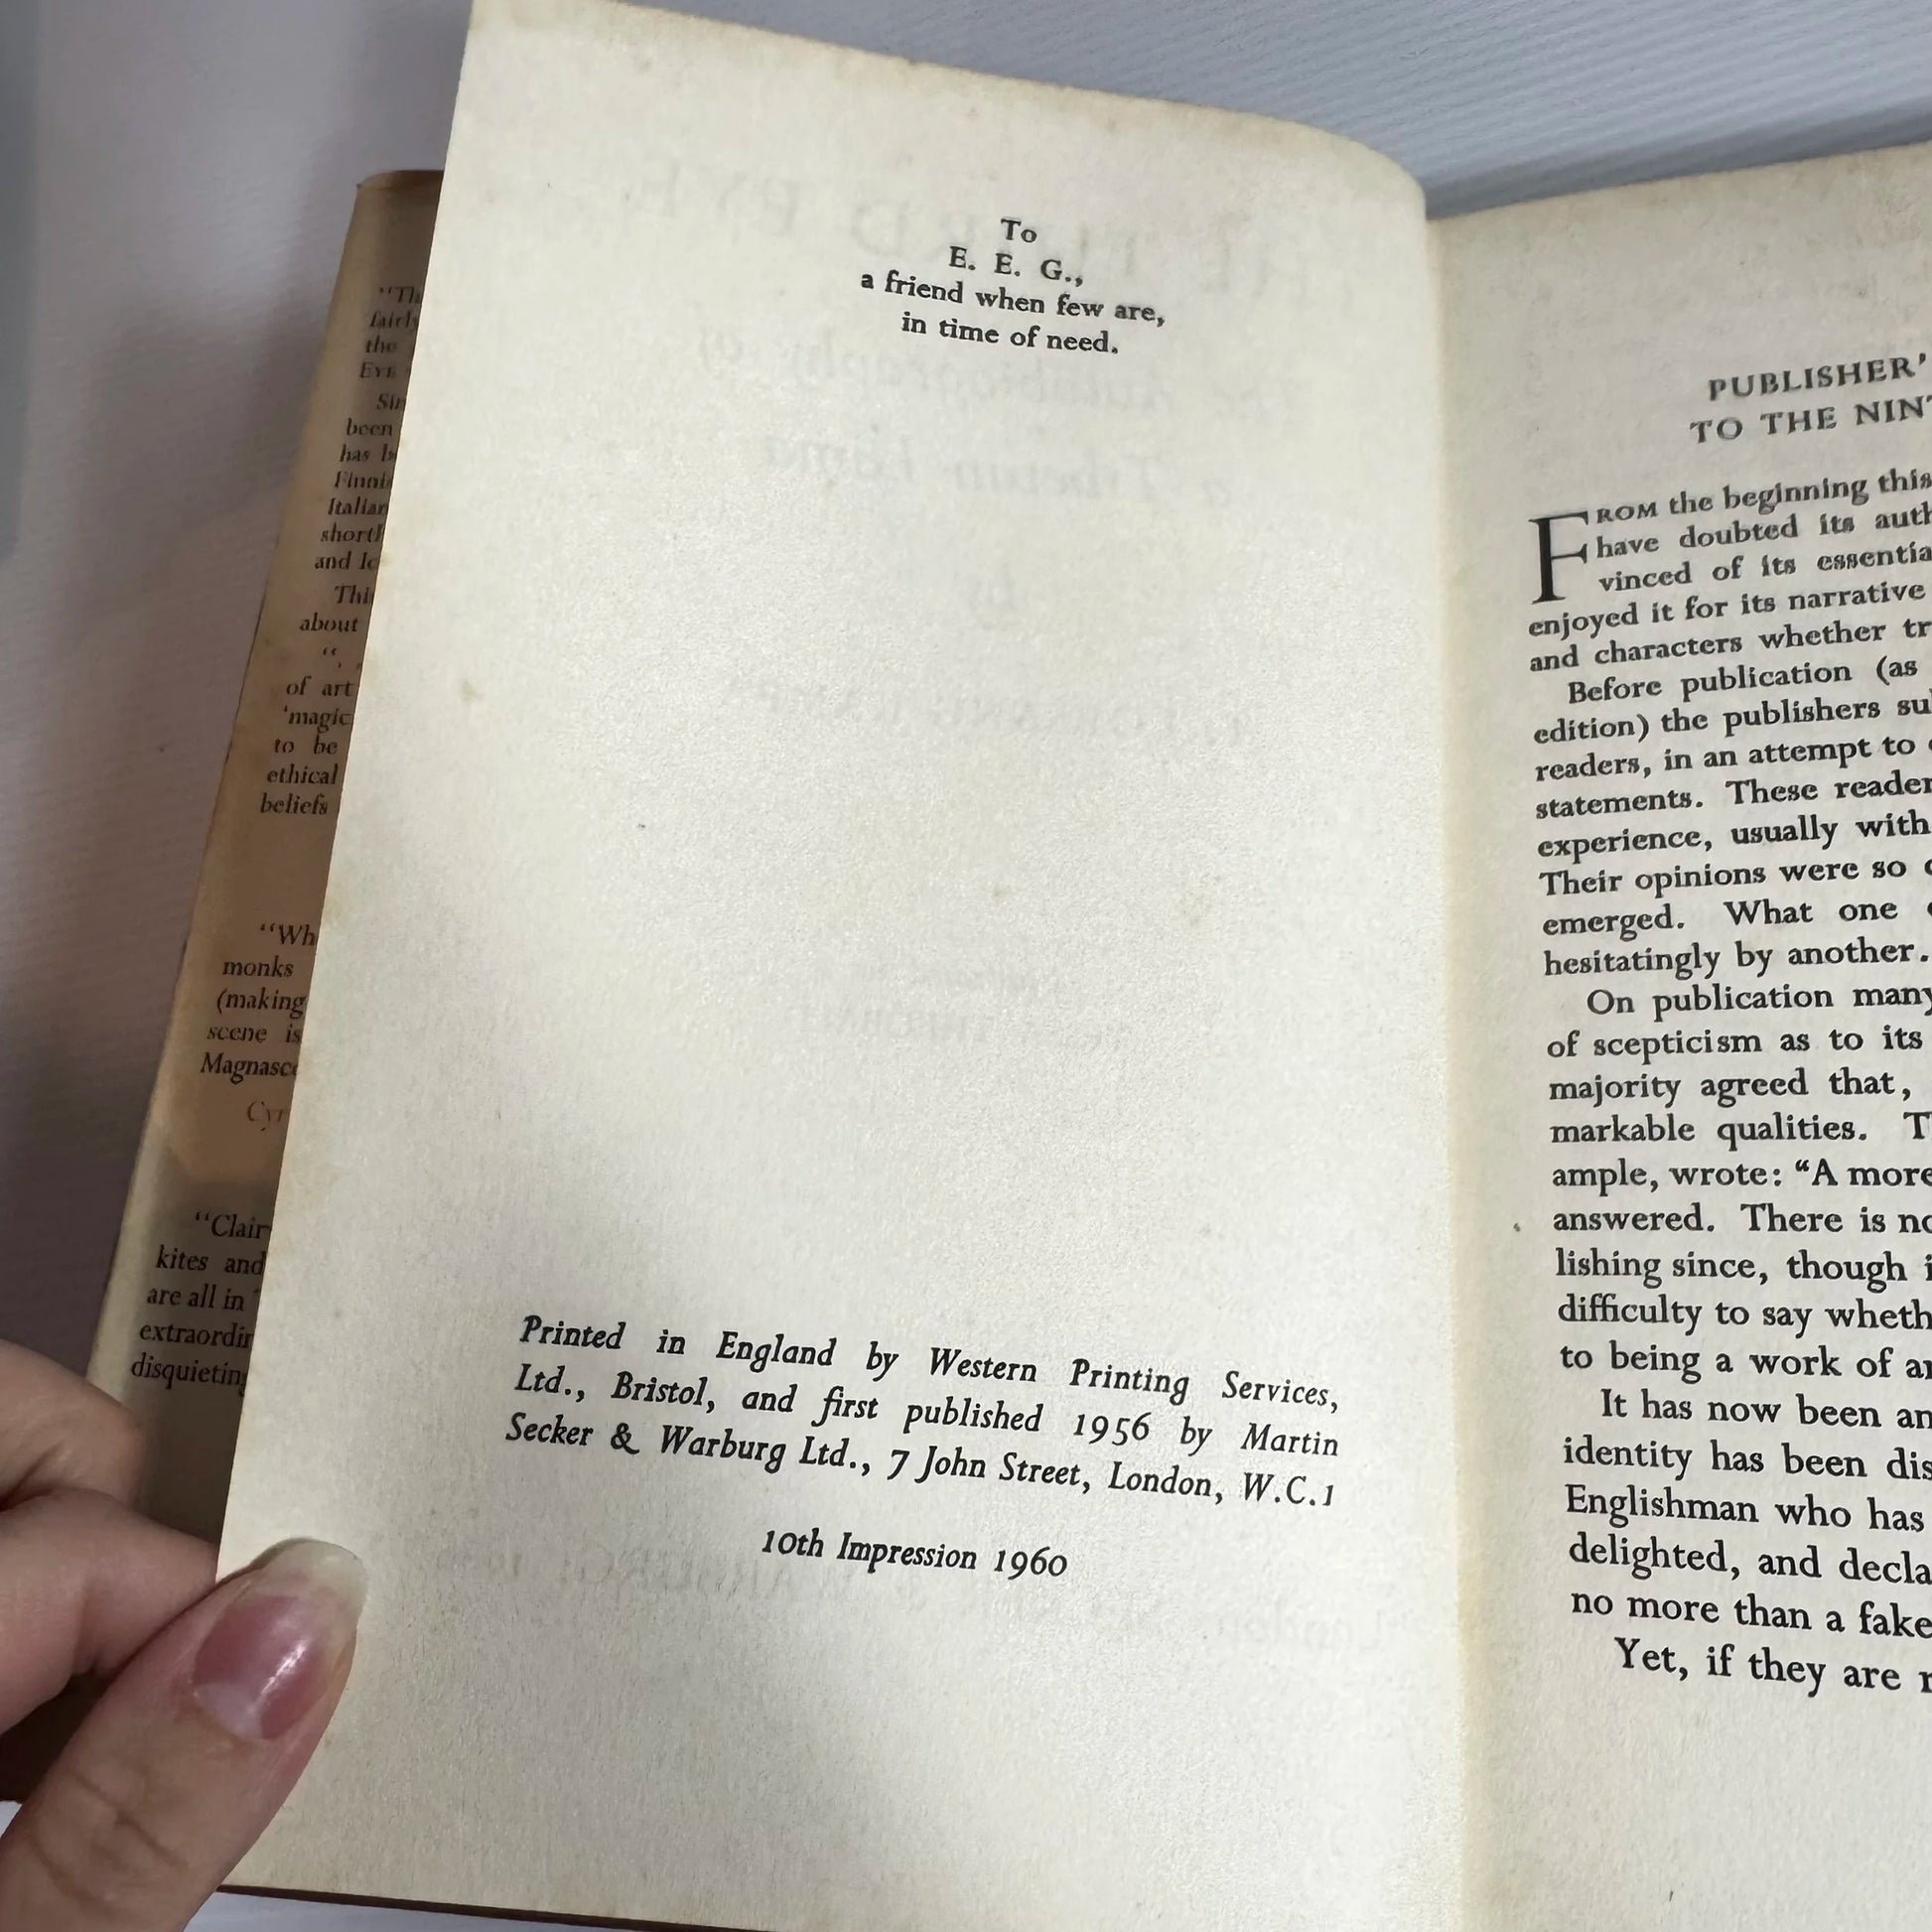 "Th
fairly
the
EYE
Sin
been
has b
Finnis
Italian
shortl
and Ic
Thi
about
of art
'magic
to be
ethical
beliefs
"Wh
monks
(making
scene is
Magnasco
Cyr
"Clair
kites and
are all in
extraordin
disquieting
To
E. E. G.,
a friend when few are,
in time of need.
Printed in England by Western Printing Services,
Ltd., Bristol, and first published 1956 by Martin
Secker & Warburg Ltd., 7 John Street, London, W.C.1
10th Impression 1960
PUBLISHER'
TO THE NIN
FROM the beginning this
have doubted its auth
vinced of its essentia
enjoyed it for its narrative
and characters whether tr
Before publication (as
edition) the publishers su
readers, in an attempt to
statements. These reader
experience, usually with
Their opinions were so
emerged. What one
hesitatingly by another.
On publication many
of scepticism as to its
majority agreed that,
markable qualities. T
ample, wrote: "A more
answered. There is no
lishing since, though i
difficulty to say wheth
to being a work of ar
It has now been an
identity has been dis
Englishman who has
delighted, and decla
no more than a fake
Yet, if they are r